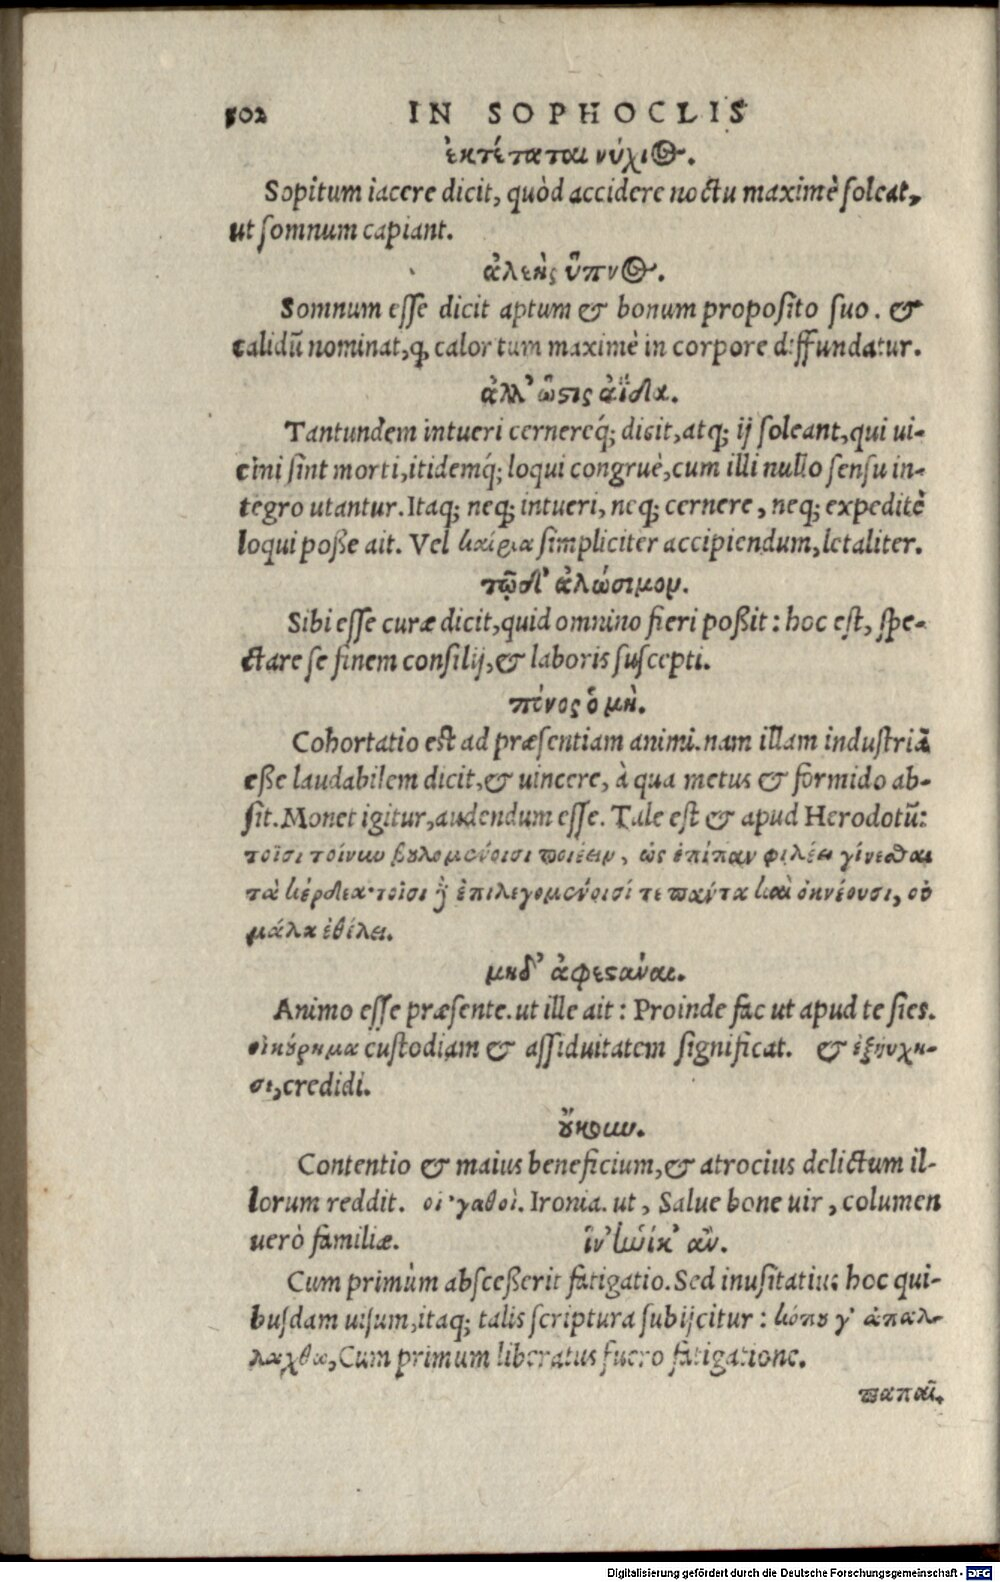 502 IN SOPHOCLIS
ἐκτέταται νύχιος.
Sopitum iacere dicit, quòd accidere noctu maximè soleat,
ut somnum capiant.
ἀλεὴς ὕπνος.
Somnum esse dicit aptum & bonum proposito suo. &
calidū nominat, q, calor tum maximè in corpore diffundatur.
ἀλλ' ὥστις ἀΐδα.
Tantundem intueri cernereq́; dicit, atq; ij soleant, qui ui-
cini sint morti, itidemq́; loqui congruè, cum illi nullo sensu in-
tegro utantur. Itaq; neq; intueri, neq; cernere, neq; expeditè
loqui poße ait. Vel καίρια simpliciter accipiendum, letaliter.
τῷδ' ἁλώσιμον.
Sibi esse curæ dicit, quid omnino fieri poßit: hoc est, spe-
ctare se finem consilij, & laboris suscepti.
πόνος ὁ μὴ.
Cohortatio est ad præsentiam animi. nam illam industriā
eße laudabilem dicit, & uincere, à qua metus & formido ab-
sit. Monet igitur, audendum esse. Tale est & apud Herodotū:
τοῖσι τοίνυν βουλομένοισι ποιέειν, ὡς ἐπίπαν φιλέει γίνεσθαι
τὰ κέρδεα· τοῖσι δὲ ἐπιλεγομένοισί τε πάντα καὶ ὀκνέουσι, οὐ
μάλα ἐθέλει.
μηδ' ἀφεστάναι.
Animo esse præsente. ut ille ait: Proinde fac ut apud te sies.
οἰκούρημα custodiam & assiduitatem significat. & ἐξηύχη-
σι, credidi.
οὔκουν.
Contentio & maius beneficium, & atrocius delictum il-
lorum reddit. οἱ 'γαθοὶ. Ironia. ut, Salue bone uir, columen
uerò familiæ. ἵν' ἡνίκ' ἂν.
Cum primùm absceßerit fatigatio. Sed inusitatius hoc qui-
busdam uisum, itaq; talis scriptura subijcitur: κόπου γ' ἀπαλ-
λαχθῶ, Cum primum liberatus fuero fatigatione.
παπαῖ.
Digitalisierung gefördert durch die Deutsche Forschungsgemeinschaft - DFG